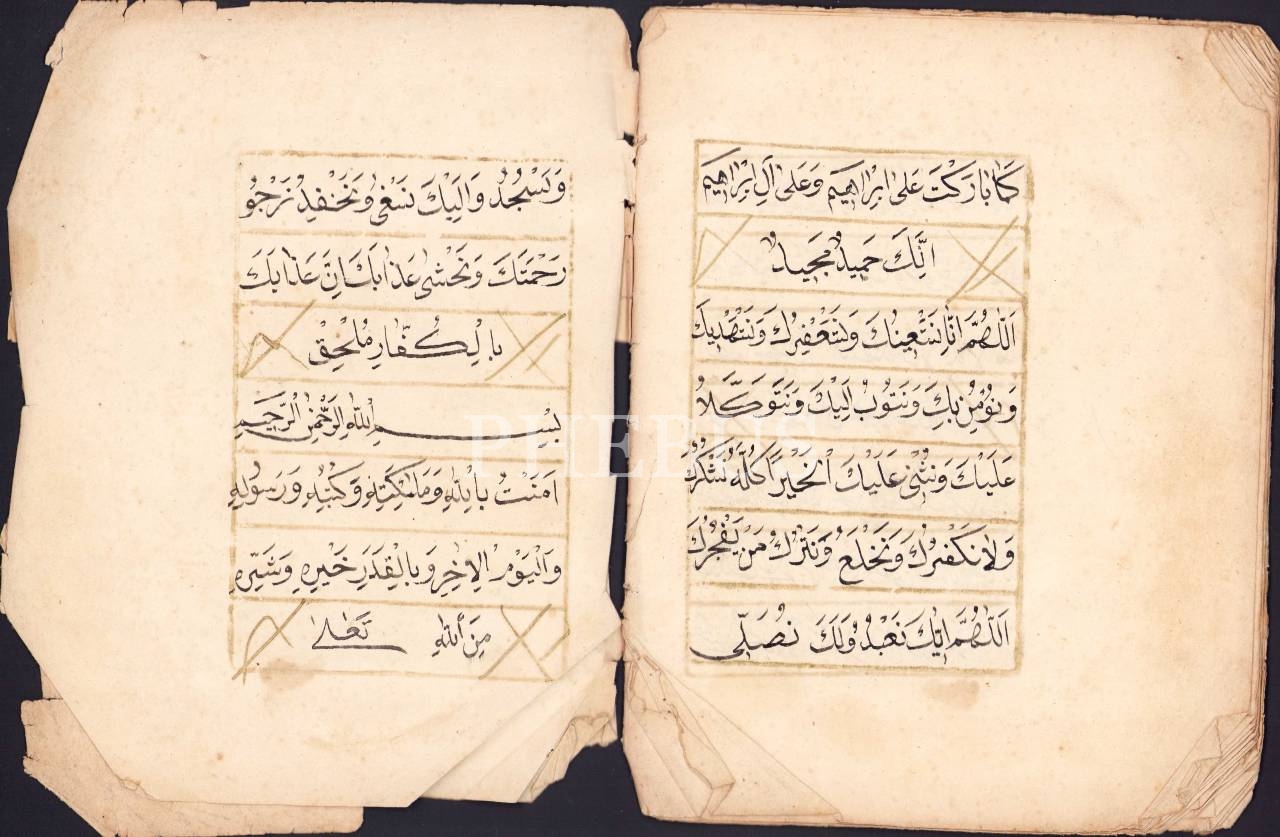 كَمَا بَارَكْتَ عَلَى اِبْرَاهِيمَ وَعَلَى آلِ اِبْرَاهِيمَ
اِنَّكَ حَمِيدٌ مَجِيدٌ
اَللّٰهُمَّ اِنَّا نَسْتَعِينُكَ وَنَسْتَغْفِرُكَ وَنَسْتَهْدِيكَ
وَنُؤْمِنُ بِكَ وَنَتُوبُ اِلَيْكَ وَنَتَوَكَّلُ
عَلَيْكَ وَنُثْنِى عَلَيْكَ الْخَيْرَ كُلَّهُ نَشْكُرُكَ
وَلَا نَكْفُرُكَ وَنَخْلَعُ وَنَتْرُكُ مَنْ يَفْجُرُكَ
اَللّٰهُمَّ اِيَّاكَ نَعْبُدُ وَلَكَ نُصَلِّى
وَنَسْجُدُ وَاِلَيْكَ نَسْعٰى وَنَحْفِدُ نَرْجُو
رَحْمَتَكَ وَنَخْشٰى عَذَابَكَ اِنَّ عَذَابَكَ
بِالْكُفَّارِ مُلْحِقٌ
بِسْمِ اللّٰهِ الرَّحْمٰنِ الرَّحِيمِ
اٰمَنْتُ بِاللّٰهِ وَمَلٰئِكَتِهِ وَكُتُبِهِ وَرَسُولِهِ
وَالْيَوْمِ الْاٰخِرِ وَبِالْقَدَرِ خَيْرِهِ وَشَرِّهِ
مِنَ اللّٰهِ تَعَالٰى
PHEBUS